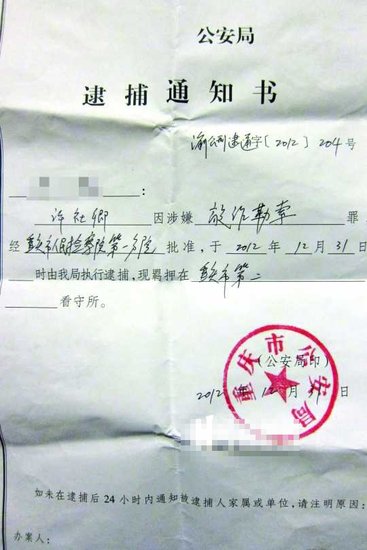 公安局
逮捕通知书
渝公刑逮通字〔2012〕204号
:
许社卿 因涉嫌 敲诈勒索 罪
经 重庆市人民检察院第一分院 批准,于 2012 年 12 月 31 日
时由我局执行逮捕,现羁押在 重庆市第二
看守所。
重庆市公安局
(公安局印)
2012 年 12 月 31 日
如未在逮捕后24小时内通知被逮捕人家属或单位,请注明原因:
办案人: